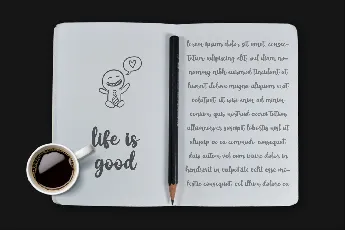 life is
good
lorem ipsum dolor sit amet, consec-
tetuer adipiscing elit, sed diam no-
nummy nibh euismod tincidunt ut
laoreet dolore magna aliquam erat
volutpat. ut wisi enim ad minim
veniam, quis nostrud exerci tation
ullamcorper suscipit lobortis nisl ut
aliquip ex ea commodo consequat.
duis autem vel eum iriure dolor in
hendrerit in vulputate velit esse mo-
lestie consequat, vel illum dolore eu